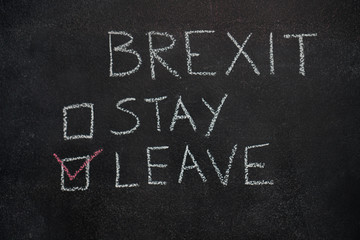 BREXIT
STAY
LEAVE